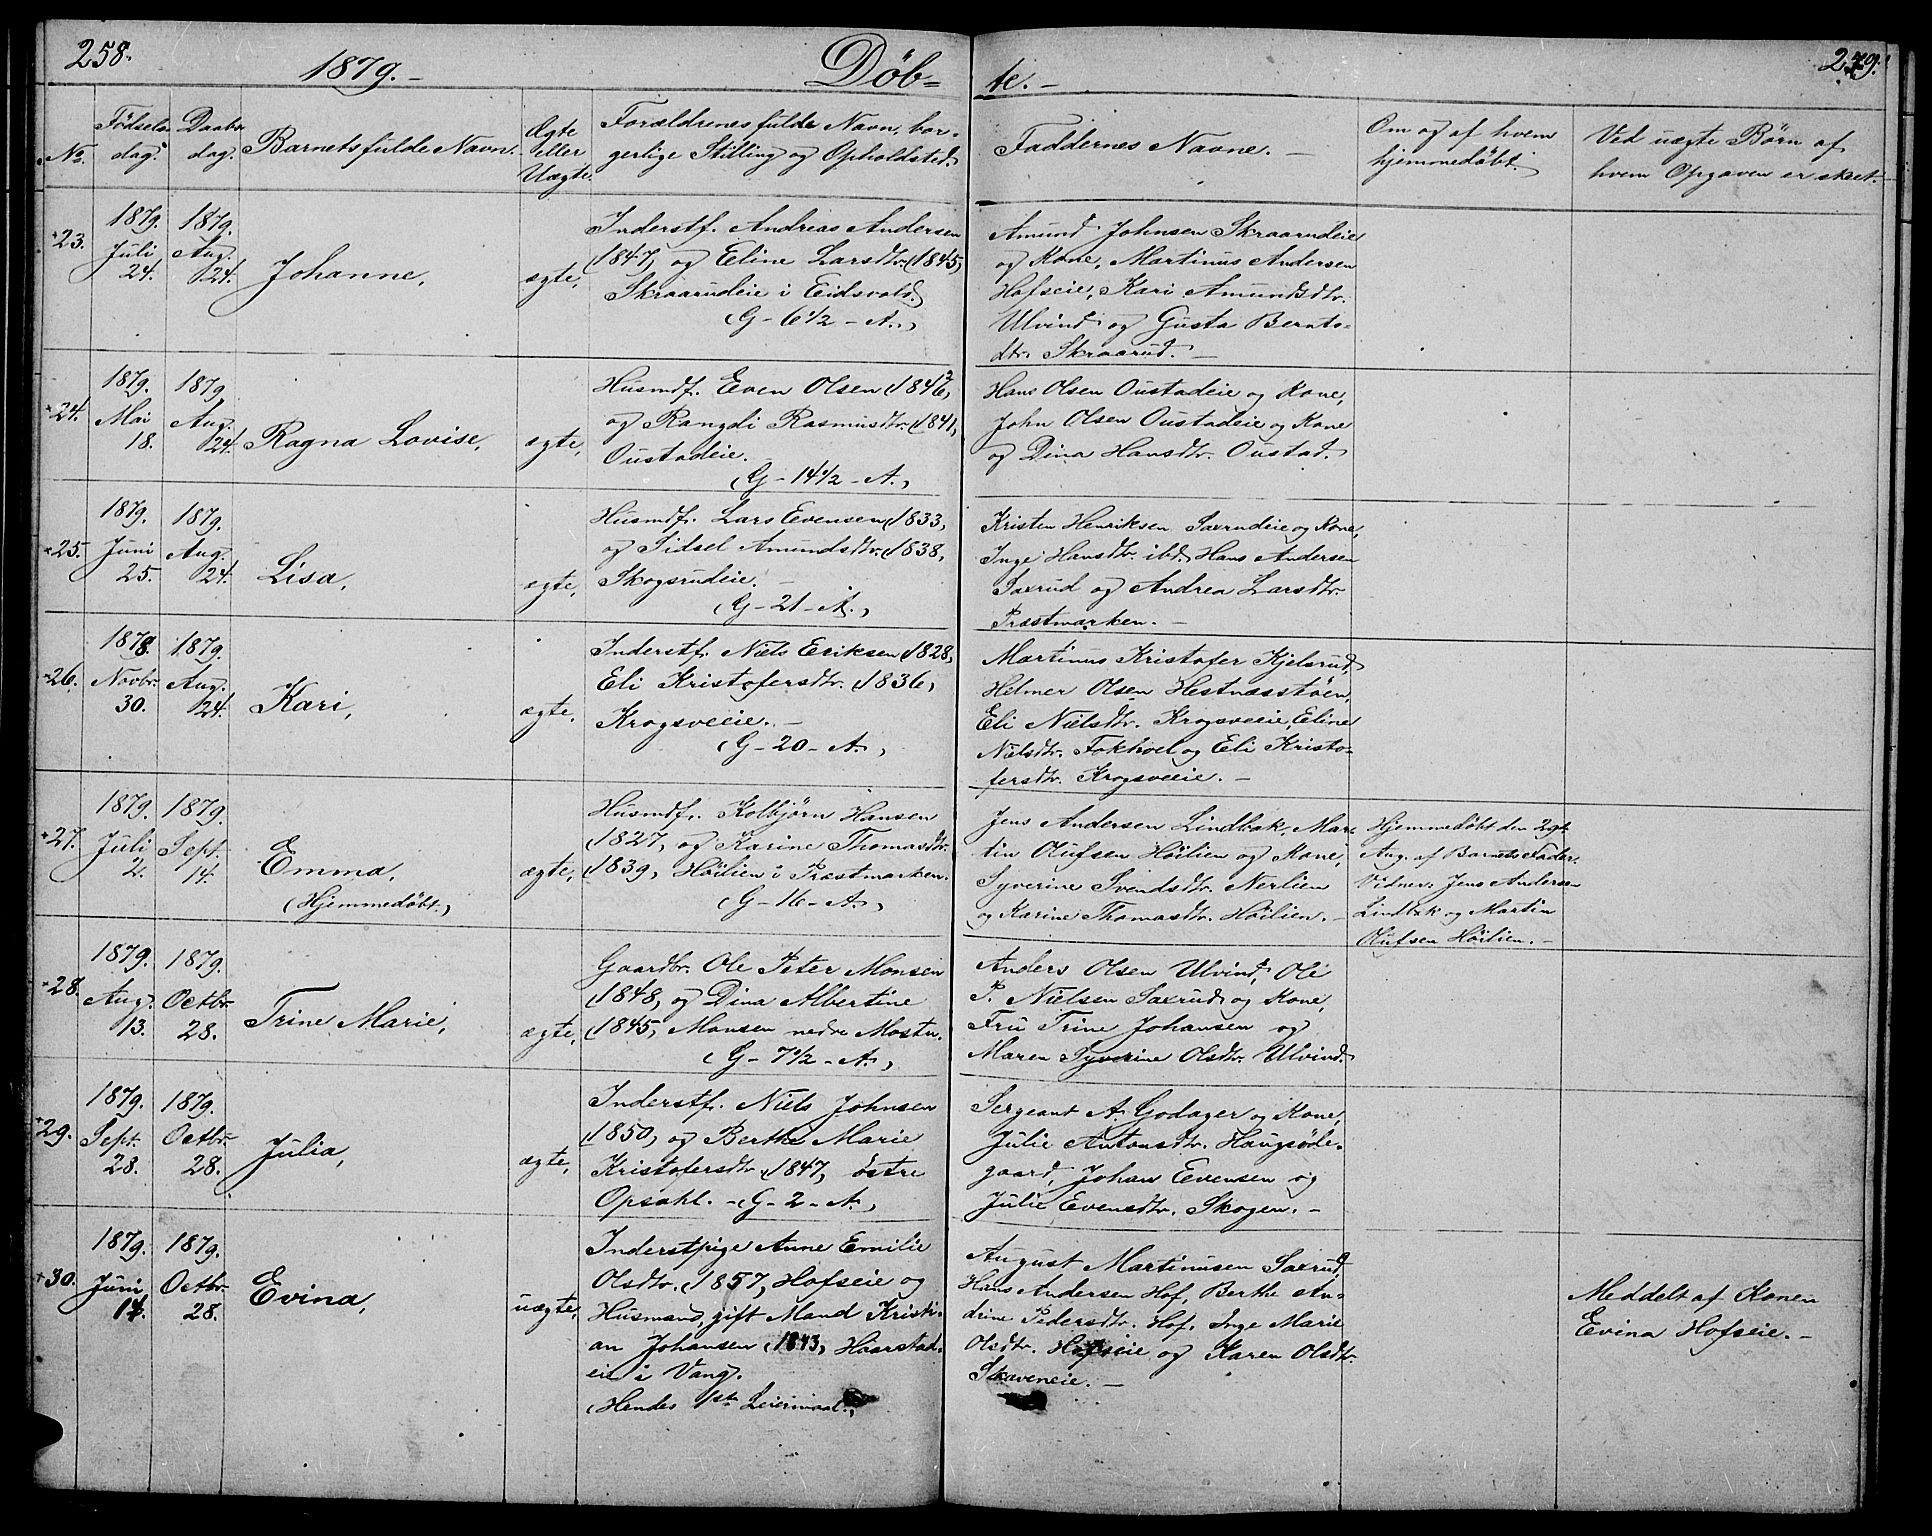 258.
1879.-
Døb-
te.-
259.
No.
Fødsels-
dag.
Daabs-
dag.
Barnets fulde Navn.
Ægte
eller
Uægte.
Forældrenes fulde Navn, bor-
gerlige Stilling og Opholdsted.
Faddernes Navne. -
Om og af hvem
hjemmedøbt.
Ved uægte Børn af
hvem Opgaven er skeet.
+23.
1879.
Juli
24.
1879.
Aug.
24.
Johanne,
ægte,
Inderstf. Andreas Andersen
(1847, og Eline Larsdtr. (1845,
Skraarudeie i Eidsvold.
(G - 6 1/2 - A.)
Amund Johnsen Skraarudeie
og Kone, Martinus Andersen
Hofseie, Kari Amundsdtr.
Ulvind og Gusta Bernts-
dtr. Skraarud. -
+24.
1879.
Mai
18.
1879.
Aug.
24.
Ragna Lovise,
ægte,
Husmdf. Even Olsen (1842,
og Rangdi Rasmusdtr. (1841,
Oustadeie.
(G - 14 1/2 - A.)
Hans Olsen Oustadeie og Kone,
John Olsen Oustadeie og Kone
og Dina Hansdtr. Oustad.
+25.
1879.
Juni
25.
1879.
Aug.
24.
Lisa,
ægte,
Husmdf. Lars Evensen (1833,
og Sidsel Amundsdtr. (1838,
Skogsrudeie. -
(G - 21 - A.)
Kristen Henriksen Saxrudeie og Kone,
Inge Hansdtr. ibd. Hans Andersen
Saxrud og Andrea Larsdtr.
Præstmarken. -
+26.
1878.
Novbr.
30.
1879.
Aug.
24.
Kari,
ægte,
Inderstf. Niels Eriksen (1828,
Eli Kristofersdtr. (1836,
Krogsveeie. -
(G - 20 - A.)
Martinus Kristofer Kjelsrud,
Helmer Olsen Hestnæsstøen,
Eli Nielsdtr. Krogsveeie, Eline
Nielsdtr. Fokhol og Eli Kristo-
fersdtr. Krogsveeie. -
+27.
1879.
Juli
2.
1879.
Sept.
14.
Emma,
(Hjemmedøbt.)
ægte,
Husmdf. Kolbjørn Hansen
(1827, og Karine Thomasdtr.
(1839, Høilien i Præstmarken.
(G - 16 - A.)
Jens Andersen Lindbak, Mar-
tin Olufsen Høilien og Kone,
Syverine Svendsdtr. Nerlien
og Karine Thomasdtr. Høilien. -
Hjemmedøbt den 29t
Aug. af Barnets Fader.
Vidner: Jens Andersen
Lindbak og Martin
Olufsen Høilien. -
+28.
1879.
Aug.
13.
1879.
Octbr.
28.
Trine Marie,
ægte,
Gaardbr. Ole Peter Monsen
(1848, og Dina Albertine
(1845, Monsen nedre Mostu.
(G - 7 1/2 - A.)
Anders Olsen Ulvind, Ole
P. Nielsen Saxrud og Kone,
Fru Trine Johansen og
Maren Syverine Olsdtr. Ulvind.
+29.
1879.
Sept.
28.
1879.
Octbr.
28.
Julia,
ægte,
Inderstf. Niels Johnsen
(1850, og Berthe Marie
Kristofersdtr. (1847, østre
Opsahl. - (G - 2 - A.)
Sergeant A. Godager og Kone,
Julie Antonsdtr. Haugsøde-
gaard, Johan Evensen og
Julie Evensdtr. Skogen. -
+30.
1879.
Juni
14.
1879.
Octbr.
28.
Evina,
uægte,
Inderstpige Anne Emilie
Olsdtr. (1857, Hofseie og
Husmand, gift Mand Kristi-
an Johansen (1843, Haarstad-
eie i Vang.
(Hendes 1ste Leiermaal.)
August Martinusen Saxrud,
Hans Andersen Hof, Berthe An-
drine Pedersdtr. Hof, Inge Marie
Olsdtr. Hofseie og Karen Olsdtr.
Skaveneie. -
Meddelt af Konen
Evina Hofseie. -